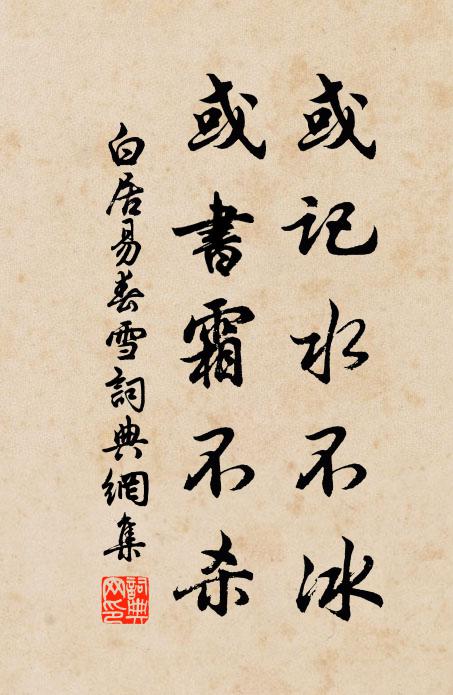 或记水不冰
或書霜不杀
白居易春雪詞典網集
詞典
网印